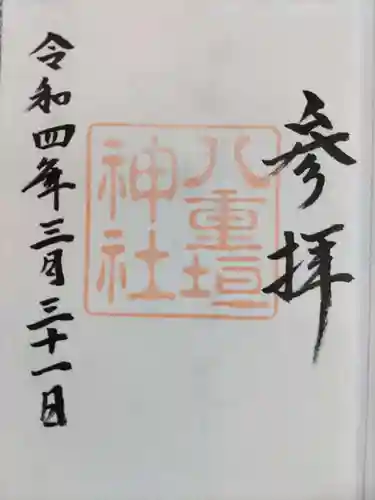 參拝
八重垣
神社
令和四年三月三十一日